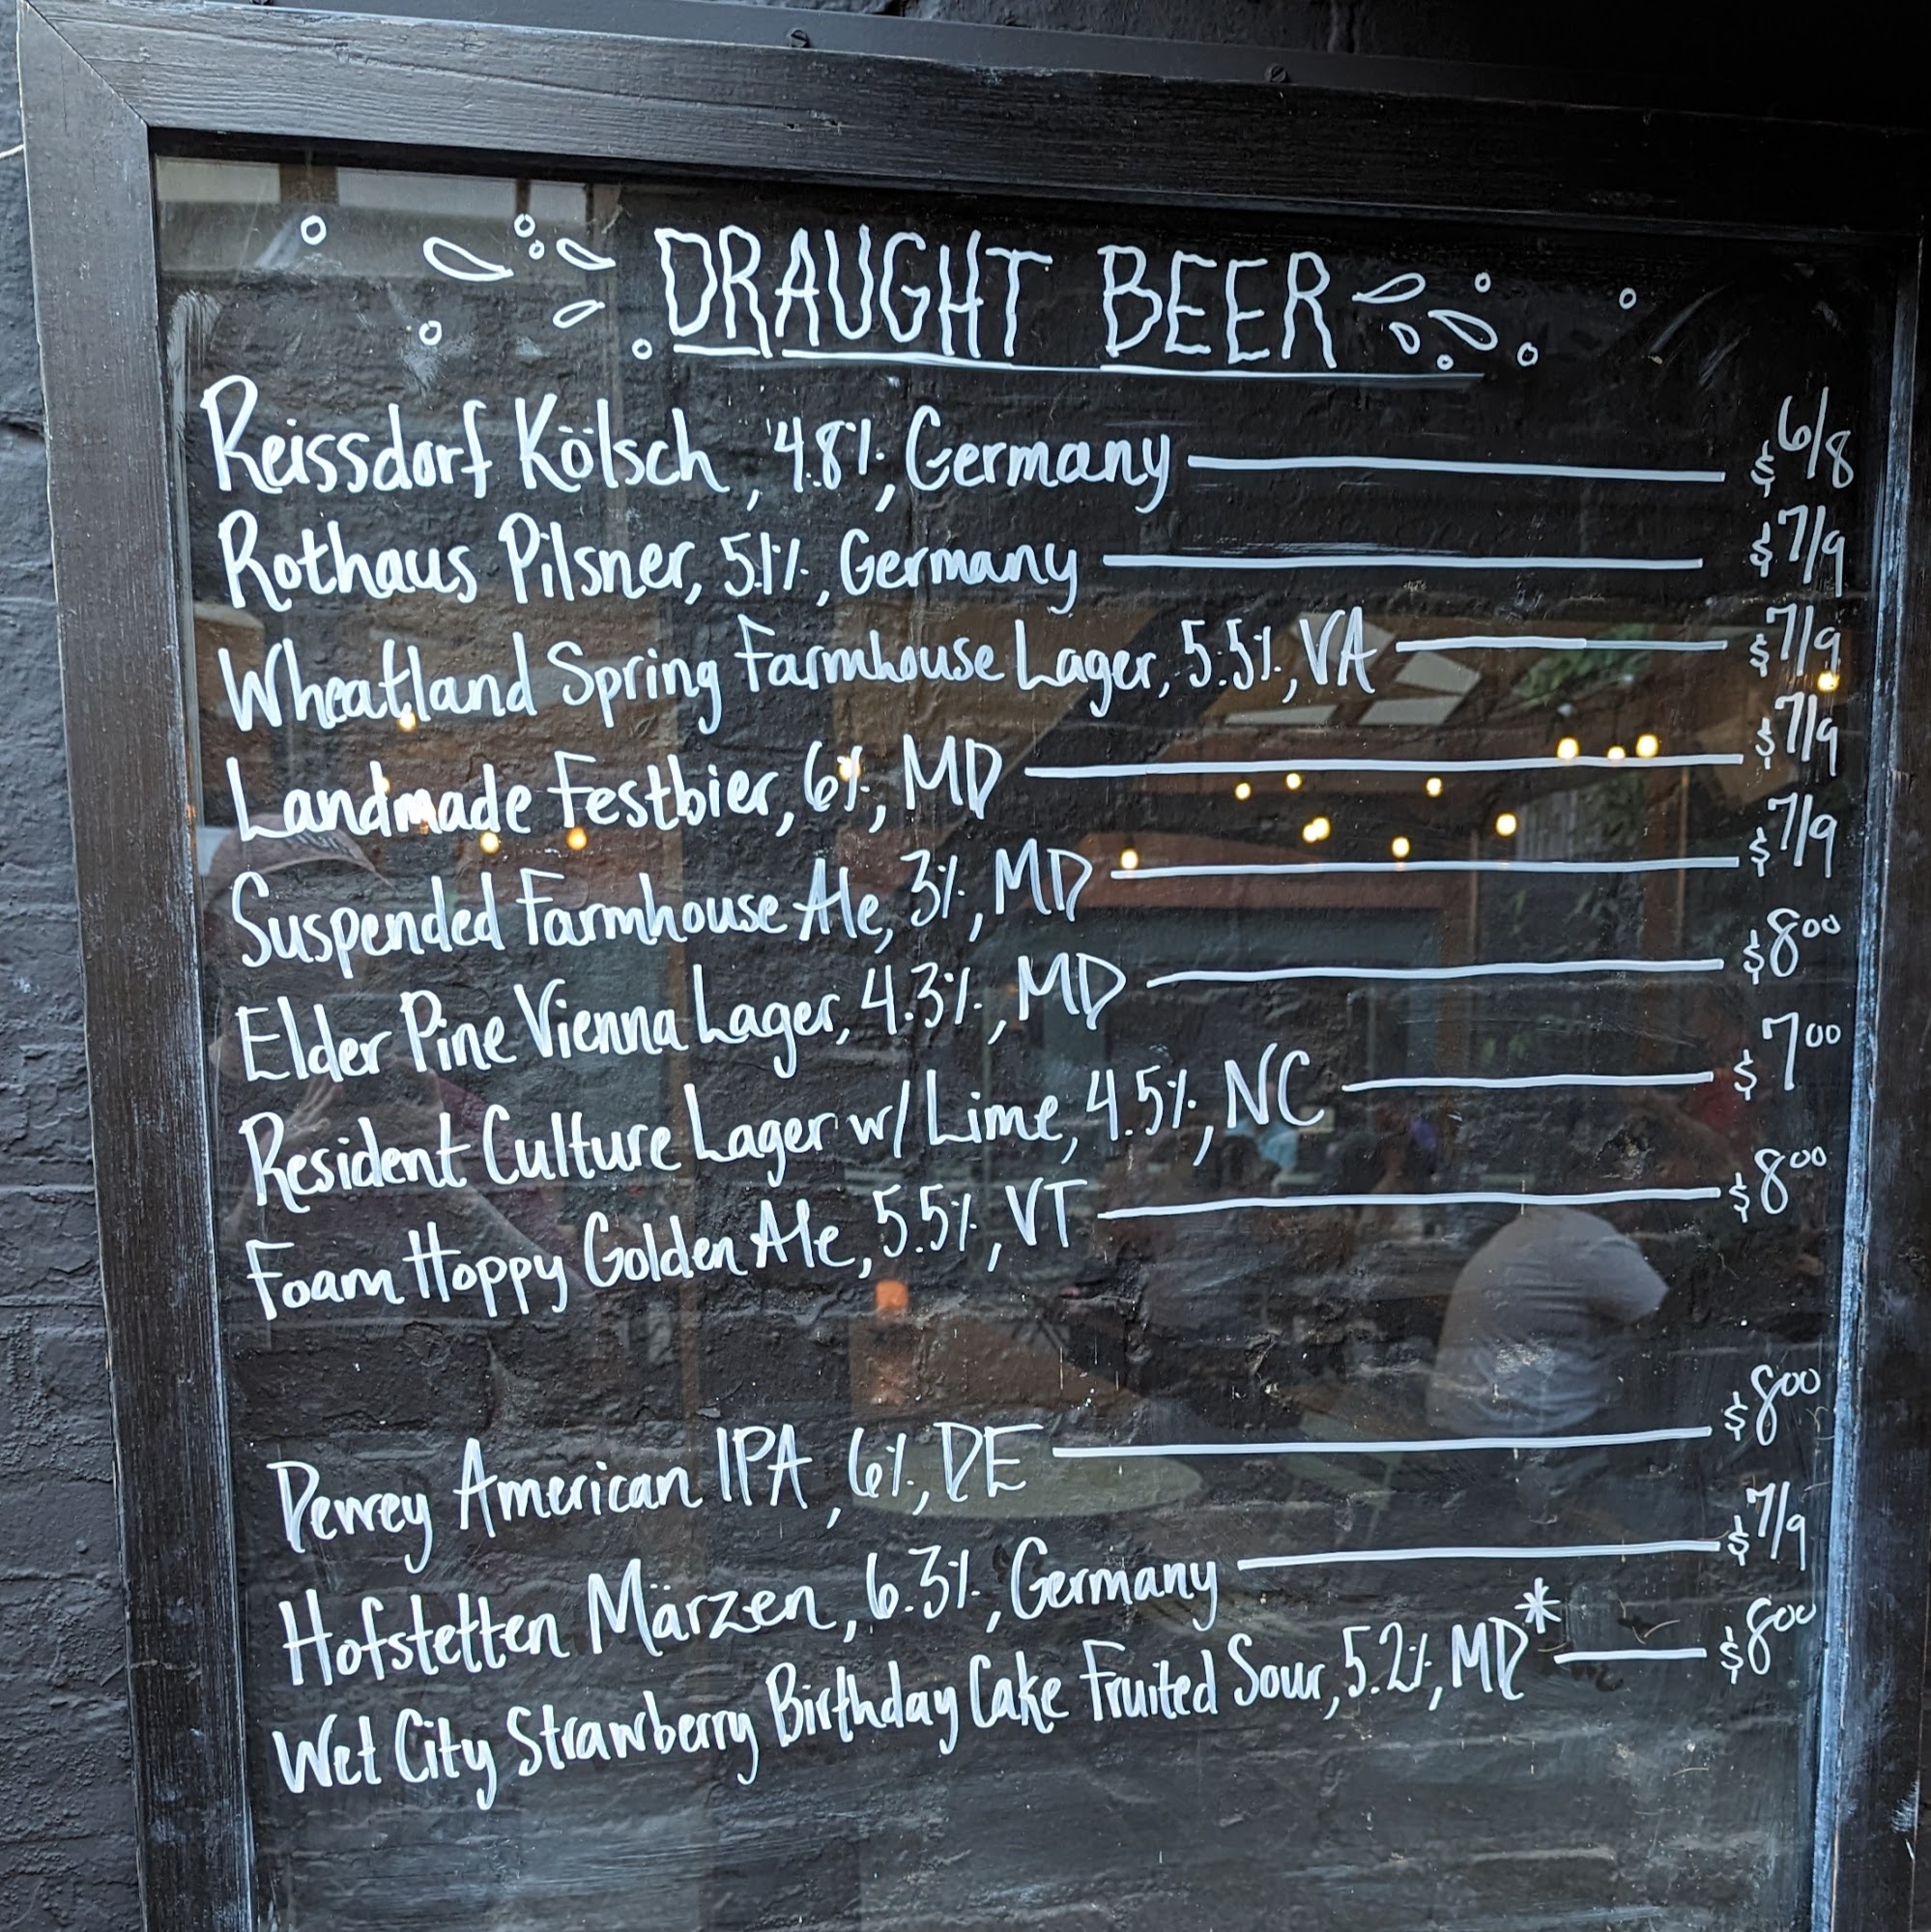 DRAUGHT BEER
Reissdorf Kölsch, 4.8%, Germany $6/8
Rothaus Pilsner, 5.1%, Germany $7/9
Wheatland Spring Farmhouse Lager, 5.5%, VA $7/9
Landmade Festbier, 6%, MD $7/9
Suspended Farmhouse Ale, 3%, MD $7/9
Elder Pine Vienna Lager, 4.3%, MD $800
Resident Culture Lager w/ Lime, 4.5%, NC $700
Foam Hoppy Golden Ale, 5.5%, VT $800
Dewey American IPA, 6%, DE $800
Hofstetten Märzen, 6.3%, Germany $7/9
Wet City Strawberry Birthday Cake Fruited Sour, 5.2%, MD* $800